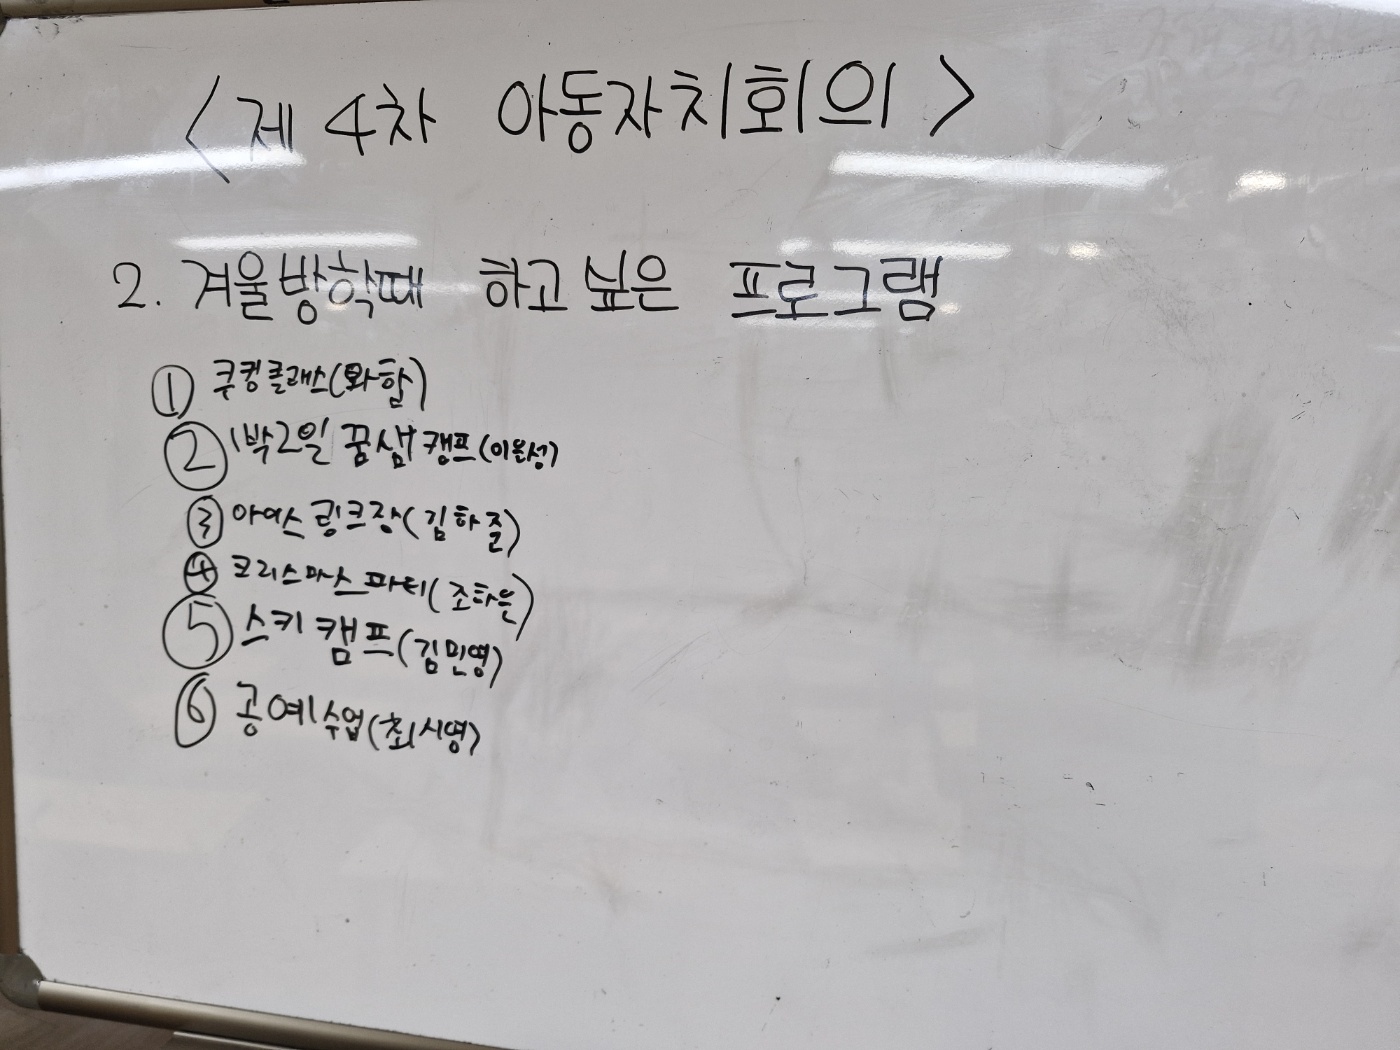 <제 4차 아동자치회의>
2. 겨울방학때 하고싶은 프로그램
① 쿠킹클래스(
② 1박2일 꿈샘 캠프(이은성)
③ 아이스 링크장(김하준)
④ 크리스마스 파티(조하은)
⑤ 스키 캠프(김민영)
⑥ 공예수업(최시영)